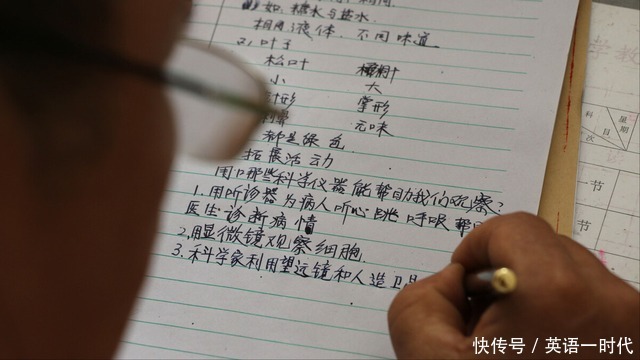 (1) 如: 糖水与盐水.
相同: 液体, 不同 味道
(2) 叶子
松叶
小 大
针形 掌形
刺鼻 无味
都是绿色
拓展活动
用哪些科学仪器能帮助我们观察?
1. 用听诊器为病人听心跳呼吸帮
医生诊断病情
2. 用显微镜观察细胞.
3. 科学家利用望远镜和人造卫星
学教
科目 星期
次
一节
一节
快传号 / 英语一时代